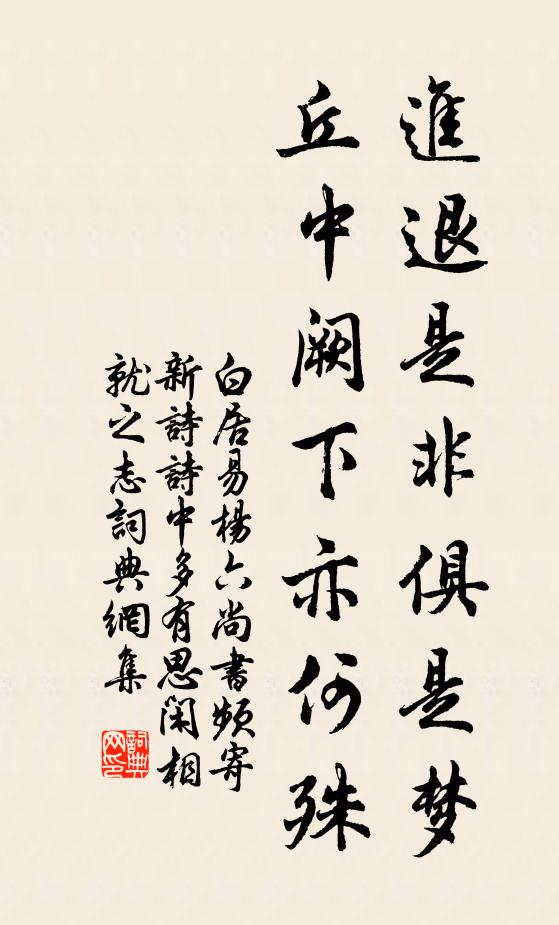 進退是非俱是梦
丘中阙下亦何殊
白居易楊六尚書頻寄
新詩詩中多有思閑相
就之志詞典網集
詞典
网印